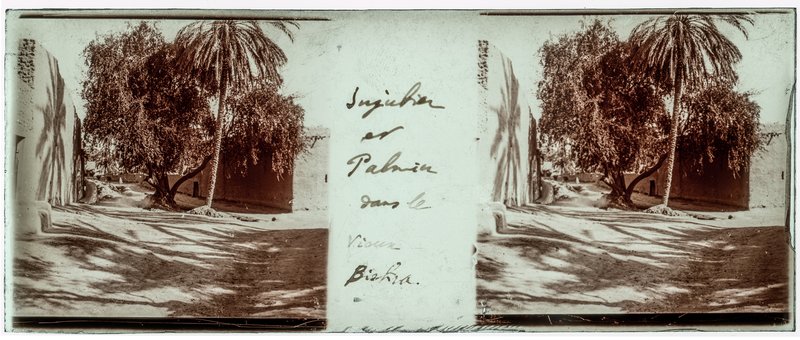 Jujubier
et
Palmier
dans le
Vieux
Biskra.